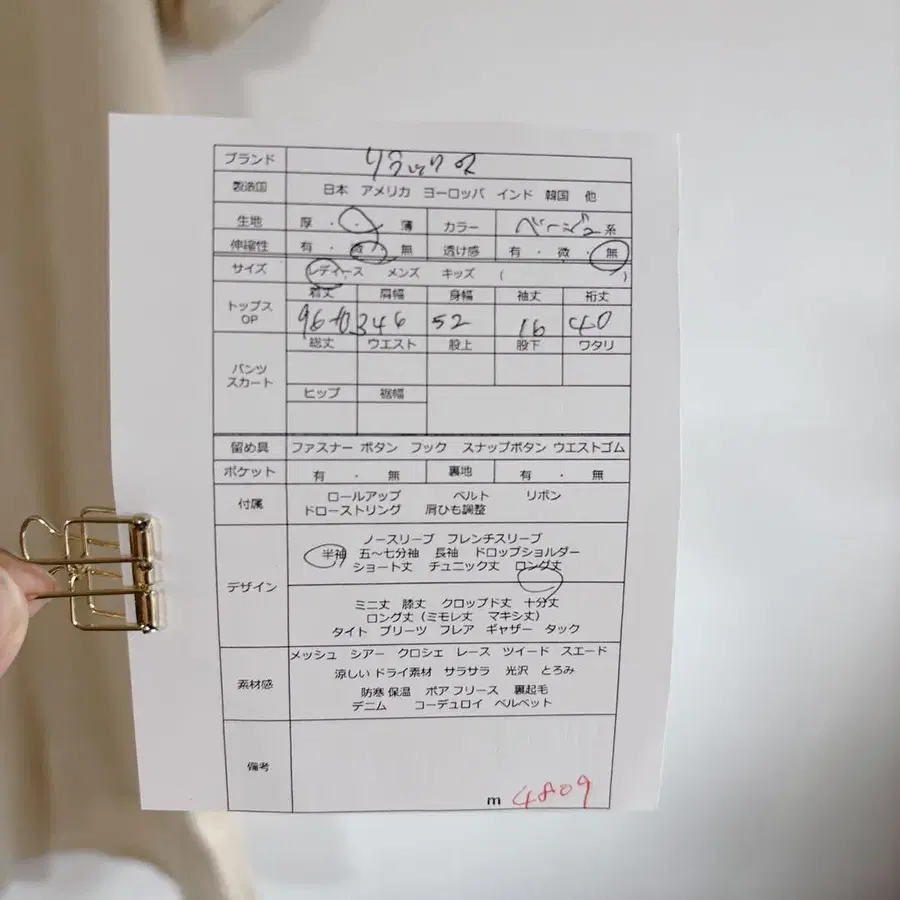 ブランド リラックス
製造国 日本 アメリカ ヨーロッパ インド 韓国 他
生地 厚 ・ ・ 薄 カラー ベージュ 系
伸縮性 有 ・ 微 ・ 無 透け感 有 ・ 微 ・ 無
サイズ レディース メンズ キッズ ( )
着丈 肩幅 身幅 袖丈 裄丈
トップス
OP
52 16 40
総丈 ウエスト 股上 股下 ワタリ
パンツ
スカート
ヒップ 裾幅
留め具 ファスナー ボタン フック スナップボタン ウエストゴム
ポケット 有 ・ 無 裏地 有 ・ 無
付属 ロールアップ ベルト リボン
ドローストリング 肩ひも調整
デザイン
ノースリーブ フレンチスリーブ
半袖 五〜七分袖 長袖 ドロップショルダー
ショート丈 チュニック丈 ロング丈
ミニ丈 膝丈 クロップド丈 十分丈
ロング丈（ミモレ丈 マキシ丈）
タイト プリーツ フレア ギャザー タック
素材感
メッシュ シアー クロシェ レース ツイード スエード
涼しい ドライ素材 サラサラ 光沢 とろみ
防寒 保温 ボア フリース 裏起毛
デニム コーデュロイ ベルベット
備考
m 4809